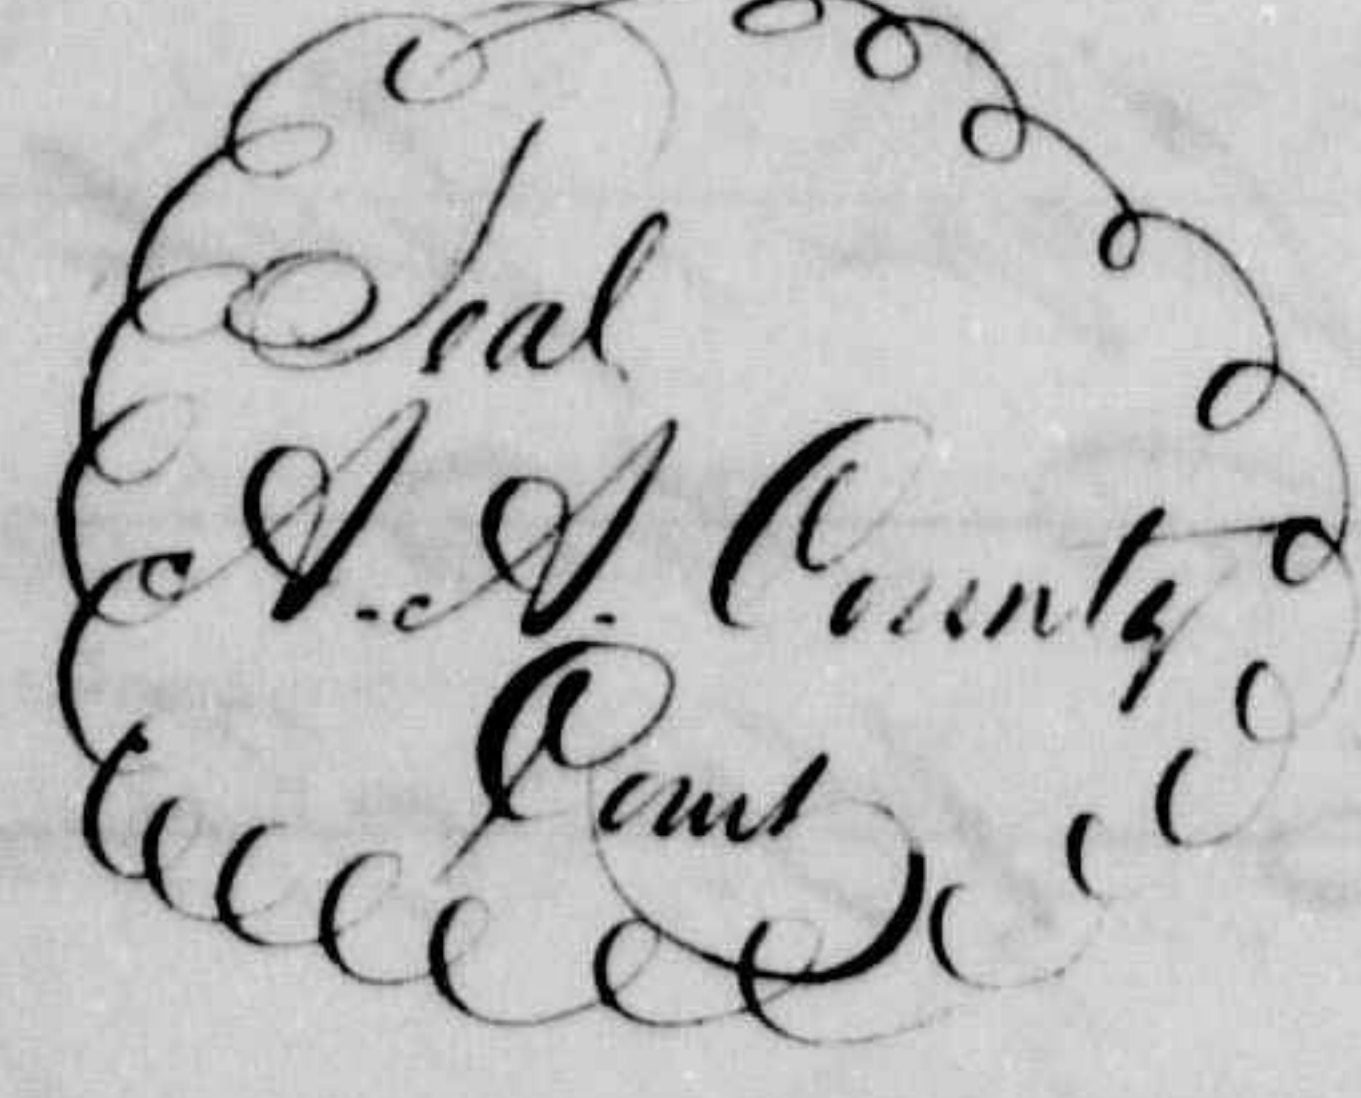 Seal
A. A. County
Court